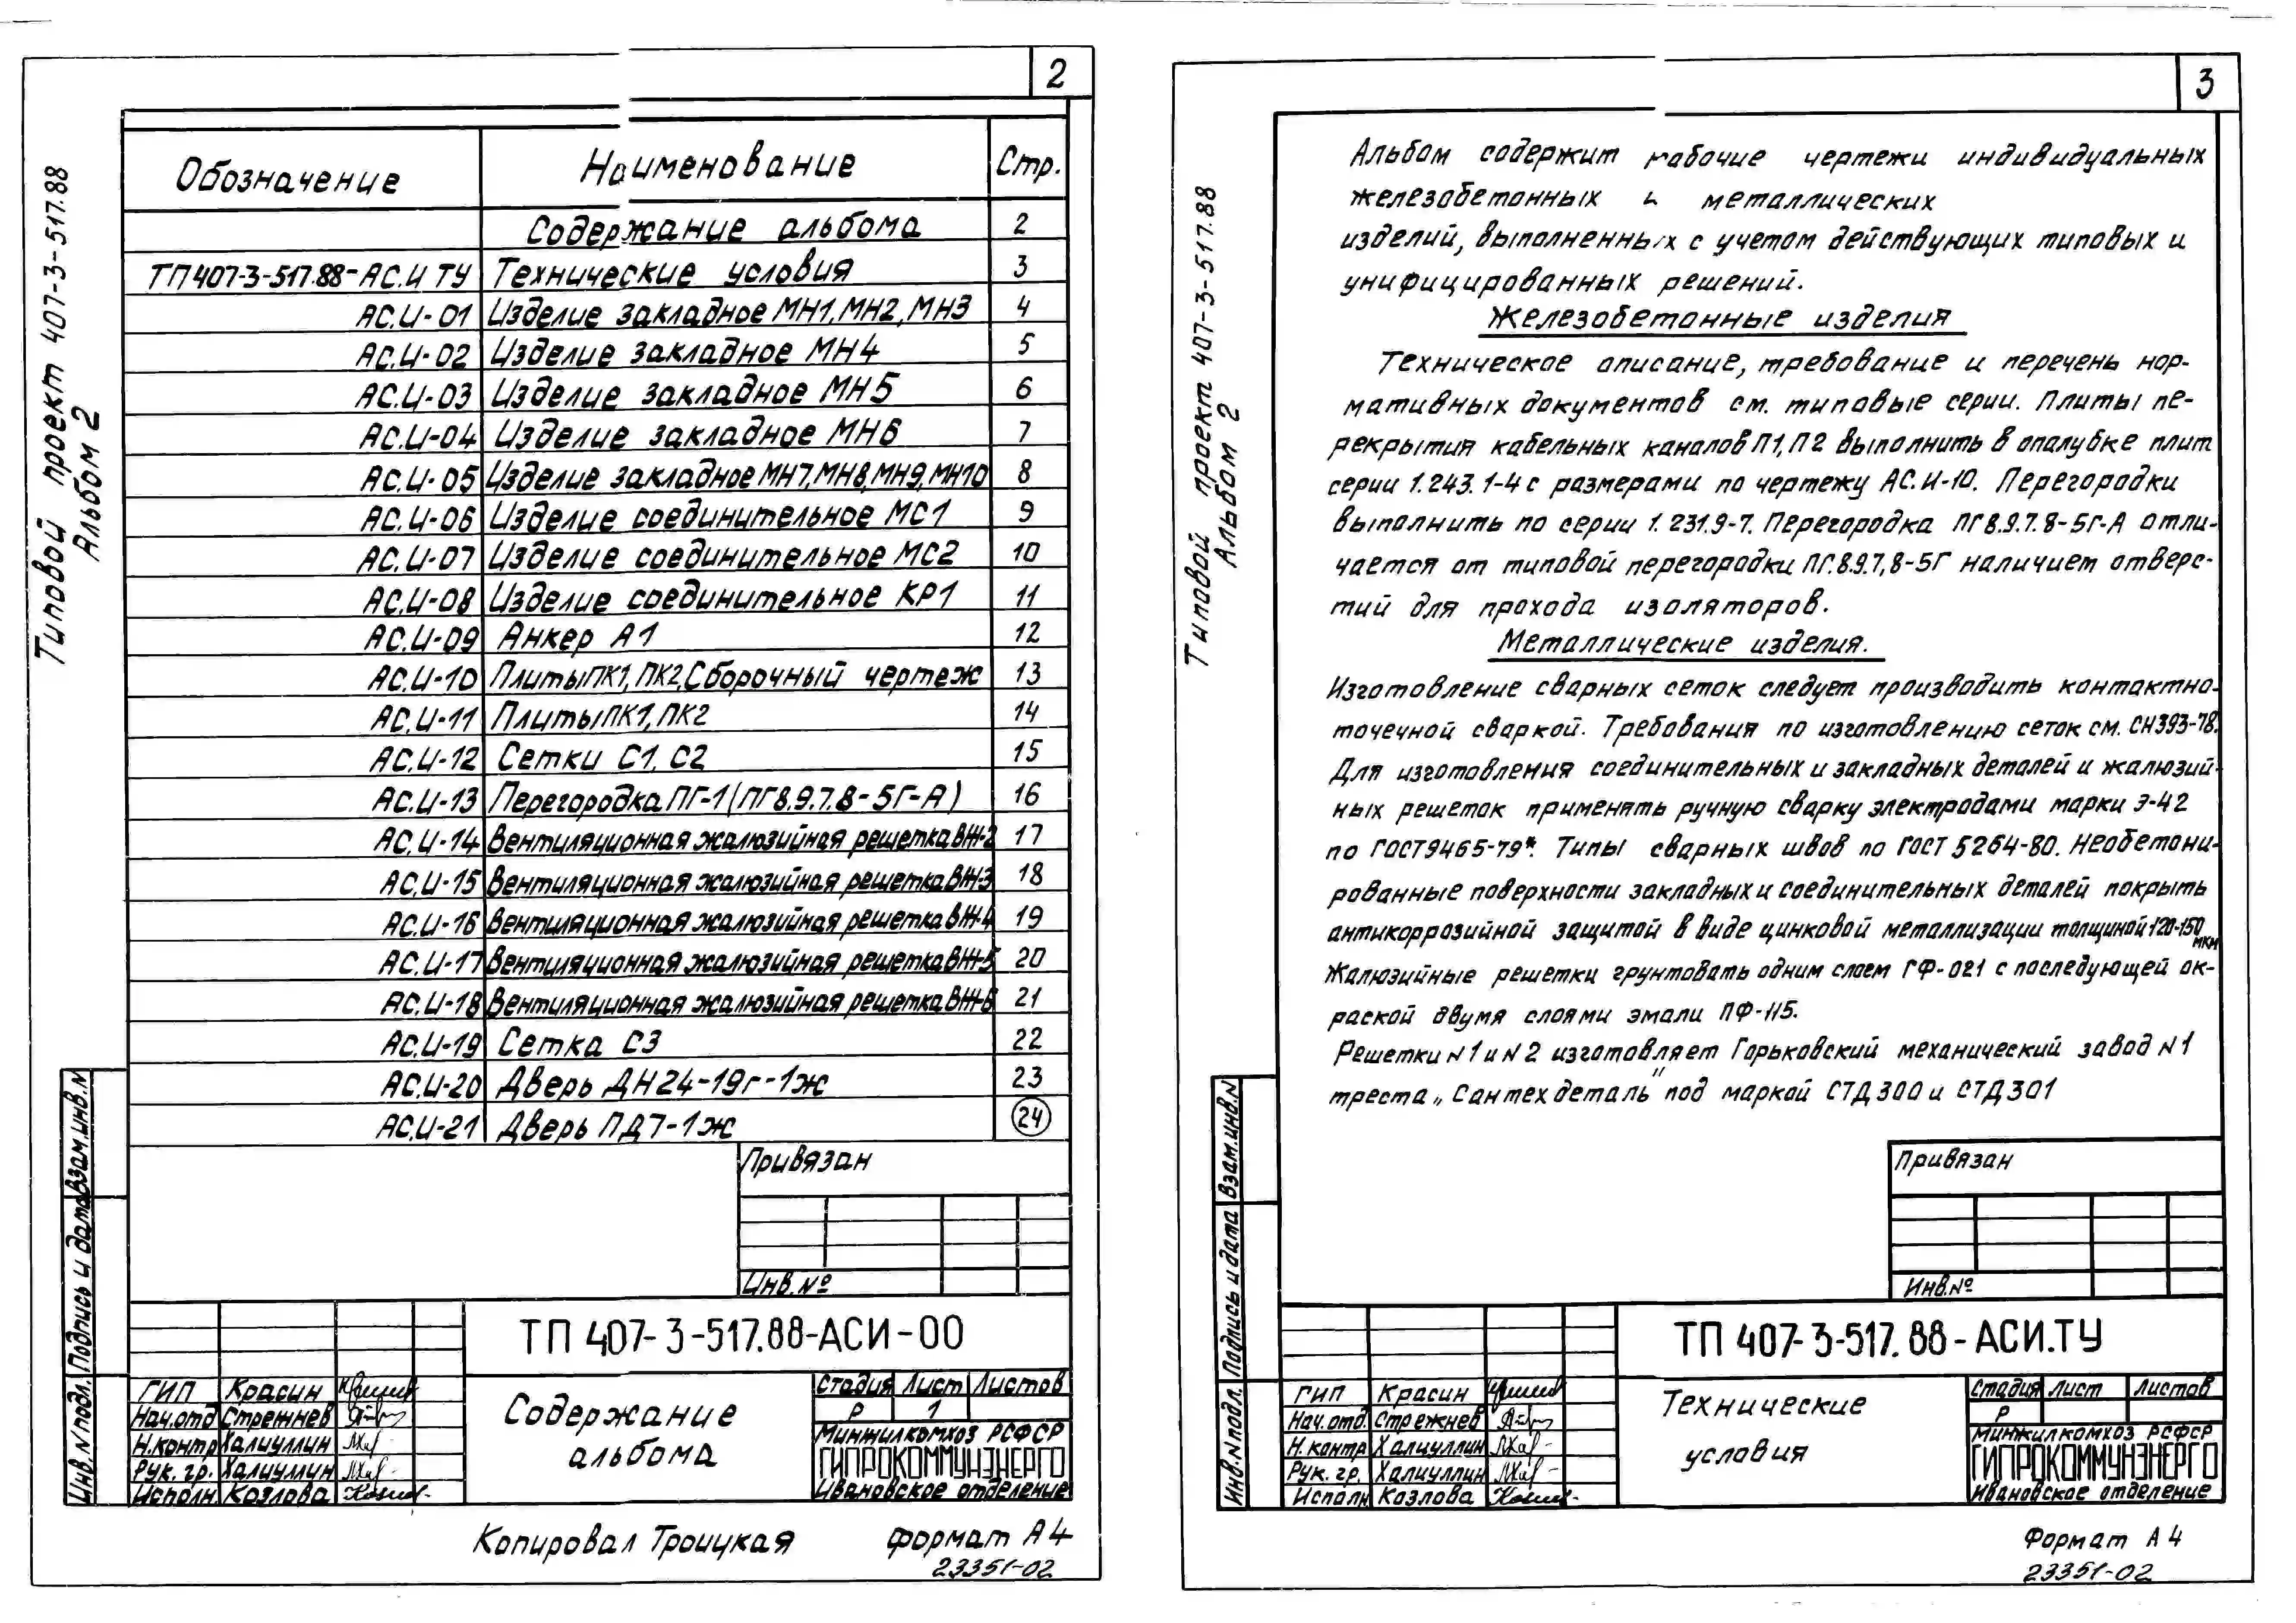 2
Типовой проект 407-3-517.88
Альбом 2
Обозначение Наименование Стр.
Содержание альбома 2
ТП407-3-517.88-АС.И ТУ Технические условия 3
АС.И-01 Изделие закладное МН1, МН2, МН3 4
АС.И-02 Изделие закладное МН4 5
АС.И-03 Изделие закладное МН5 6
АС.И-04 Изделие закладное МН6 7
АС.И-05 Изделие закладное МН7, МН8, МН9, МН10 8
АС.И-06 Изделие соединительное МС1 9
АС.И-07 Изделие соединительное МС2 10
АС.И-08 Изделие соединительное КР1 11
АС.И-09 Анкер А1 12
АС.И-10 Плиты ПК1, ПК2, Сборочный чертеж 13
АС.И-11 Плиты ПК1, ПК2 14
АС.И-12 Сетки С1, С2 15
АС.И-13 Перегородка ПГ-1 (ПГ8.9.7.8-5Г-А) 16
АС.И-14 Вентиляционная жалюзийная решетка ВЖ-2 17
АС.И-15 Вентиляционная жалюзийная решетка ВЖ-3 18
АС.И-16 Вентиляционная жалюзийная решетка ВЖ-4 19
АС.И-17 Вентиляционная жалюзийная решетка ВЖ-5 20
АС.И-18 Вентиляционная жалюзийная решетка ВЖ-6 21
АС.И-19 Сетка С3 22
АС.И-20 Дверь ДН24-19г-1ж 23
АС.И-21 Дверь ПД7-1ж 24
Привязан
Инв.№
Инв.N подл. Подпись и дата Взам.инв.N
ТП 407-3-517.88-АСИ-00
ГИП Красин
Нач.отд Стрежнев
Н.контр Халиуллин
Рук. гр. Халиуллин
Исполн Козлова
Содержание
альбома
Стадия Лист Листов
Р 1
Минжилкомхоз РСФСР
ГИПРОКОММУНЭНЕРГО
Ивановское отделение
Копировал Троицкая формат А4
23351-02
3
Типовой проект 407-3-517.88
Альбом 2
Альбом содержит рабочие чертежи индивидуальных
железобетонных и металлических
изделий, выполненных с учетом действующих типовых и
унифицированных решений.
Железобетонные изделия
Техническое описание, требование и перечень нор-
мативных документов см. типовые серии. Плиты пе-
рекрытия кабельных каналов П1, П2 выполнить в опалубке плит
серии 1.243.1-4 с размерами по чертежу АС.И-10. Перегородки
выполнить по серии 1.231.9-7. Перегородка ПГ8.9.7.8-5Г-А отли-
чается от типовой перегородки ПГ.8.9.7,8-5Г наличием отверс-
тий для прохода изоляторов.
Металлические изделия.
Изготовление сварных сеток следует производить контактно-
точечной сваркой. Требования по изготовлению сеток см. СН393-78.
Для изготовления соединительных и закладных деталей и жалюзий-
ных решеток применять ручную сварку электродами марки Э-42
по ГОСТ9465-79*. Типы сварных швов по ГОСТ 5264-80. Необетони-
рованные поверхности закладных и соединительных деталей покрыть
антикоррозийной защитой в виде цинковой металлизации толщиной 120-150 мкм
Жалюзийные решетки грунтовать одним слоем ГФ-021 с последующей ок-
раской двумя слоями эмали ПФ-115.
Решетки N1 и N2 изготовляет Горьковский механический завод N1
треста „Сантехдеталь" под маркой СТД300 и СТД301
Привязан
Инв.№
Инв.N подл. Подпись и дата Взам.инв.N
ТП 407-3-517.88-АСИ.ТУ
ГИП Красин
Нач.отд. Стрежнев
Н.контр Халиуллин
Рук. гр. Халиуллин
Исполн Козлова
Технические
условия
Стадия Лист Листов
Р
Минжилкомхоз РСФСР
ГИПРОКОММУНЭНЕРГО
Ивановское отделение
Формат А4
23351-02